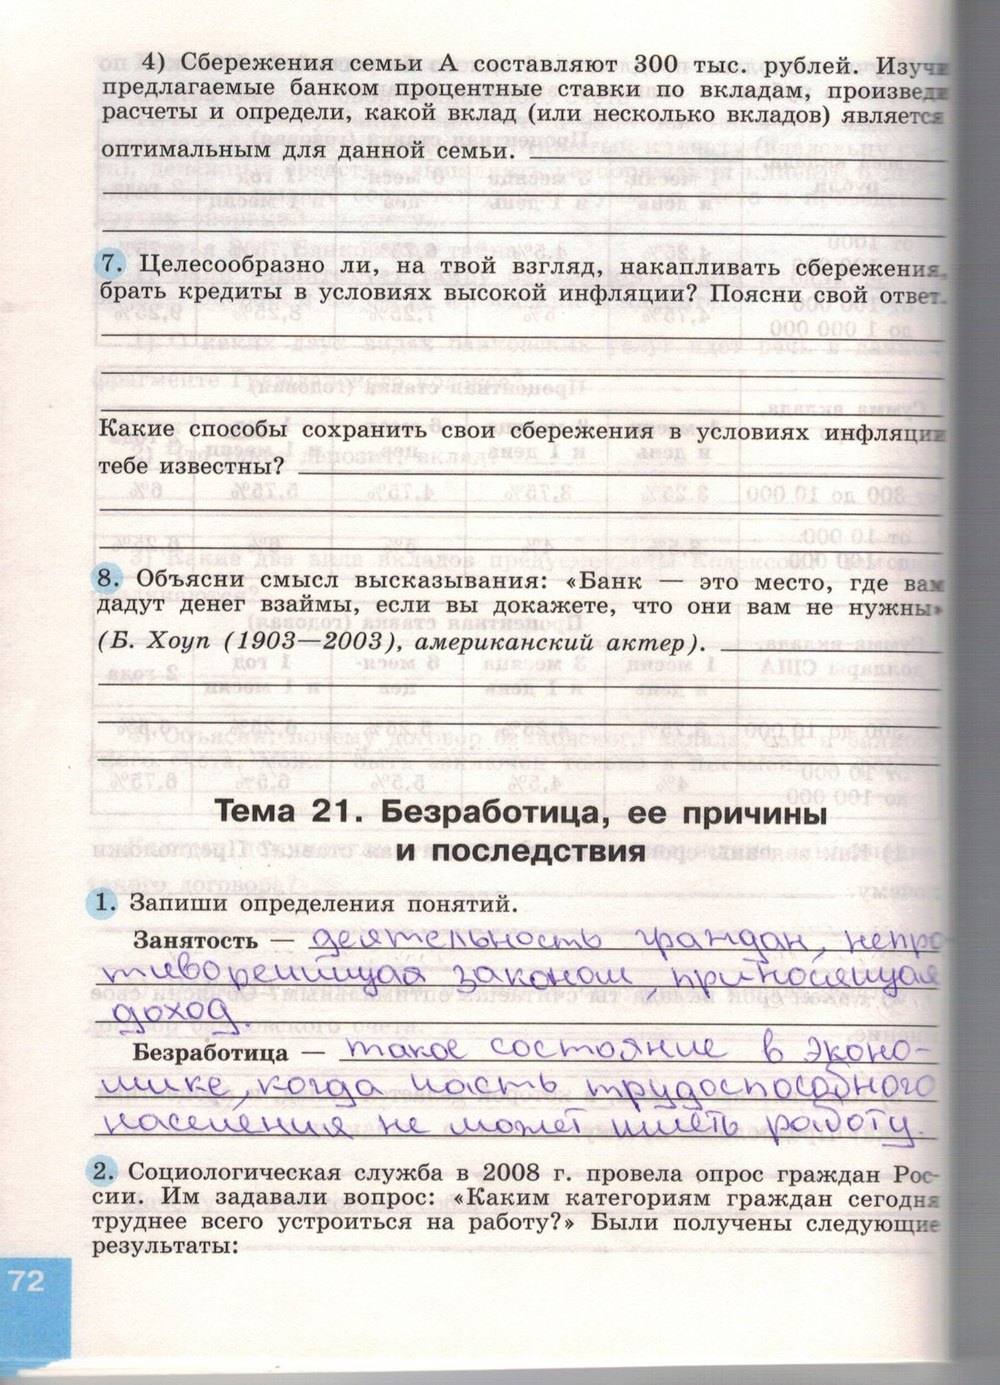 4) Сбережения семьи А составляют 300 тыс. рублей. Изучи
предлагаемые банком процентные ставки по вкладам, произведи
расчеты и определи, какой вклад (или несколько вкладов) является
оптимальным для данной семьи.
7. Целесообразно ли, на твой взгляд, накапливать сбережения,
брать кредиты в условиях высокой инфляции? Поясни свой ответ.
Какие способы сохранить свои сбережения в условиях инфляции
тебе известны?
8. Объясни смысл высказывания: «Банк — это место, где вам
дадут денег взаймы, если вы докажете, что они вам не нужны»
(Б. Хоуп (1903—2003), американский актер).
Тема 21. Безработица, ее причины
и последствия
1. Запиши определения понятий.
Занятость — деятельность граждан, непро-
тиворечащая законам, приносящая
доход.
Безработица — такое состояние в эконо-
мике, когда часть трудоспособного
населения не может иметь работу.
2. Социологическая служба в 2008 г. провела опрос граждан Рос-
сии. Им задавали вопрос: «Каким категориям граждан сегодня
труднее всего устроиться на работу?» Были получены следующие
результаты:
72